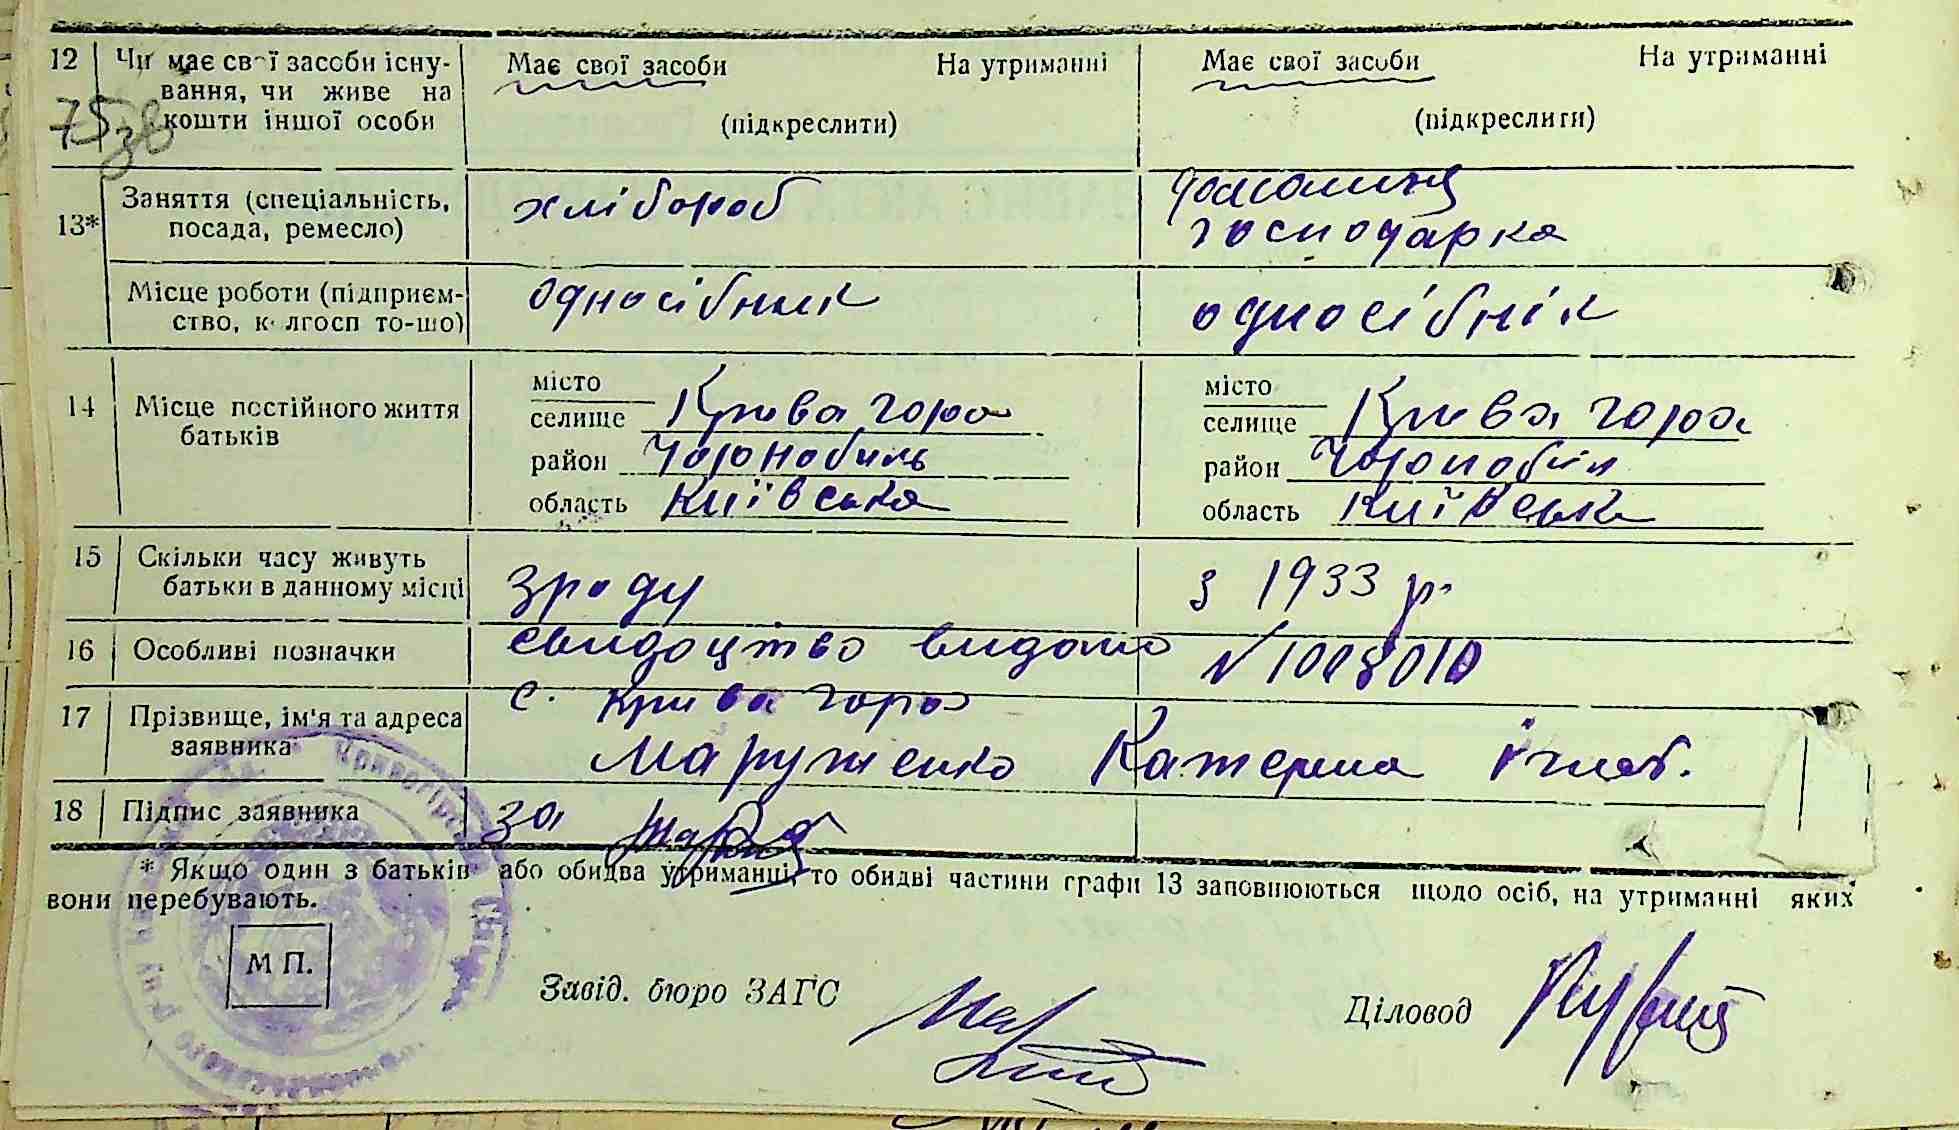 12 Чи має свої засоби існу- Має свої засоби На утриманні Має свої засоби На утриманні
вання, чи живе на
75зв кошти іншої особи (підкреслити) (підкреслити)
13* Заняття (спеціальність, посада, ремесло) хлібороб домашня господарка
Місце роботи (підприєм- односібник односібнік
ство, колгосп то-що)
14 Місце постійного життя батьків
місто місто
селище Крива гора селище Крива гора
район Чорнобиль район Чорнобил
область Київська область Київська
15 Скільки часу живуть батьки в данному місці зроду з 1933 р.
16 Особливі позначки свидоцтво видано N 1008010
17 Прізвище, ім'я та адреса с. Крива гора
заявника Маруженко Катерина Ігнат.
18 Підпис заявника за
* Якщо один з батьків або обидва утриманці, то обидві частини графи 13 заповнюються щодо осіб, на утриманні яких
вони перебувають.
М П.
Завід. бюро ЗАГС Діловод